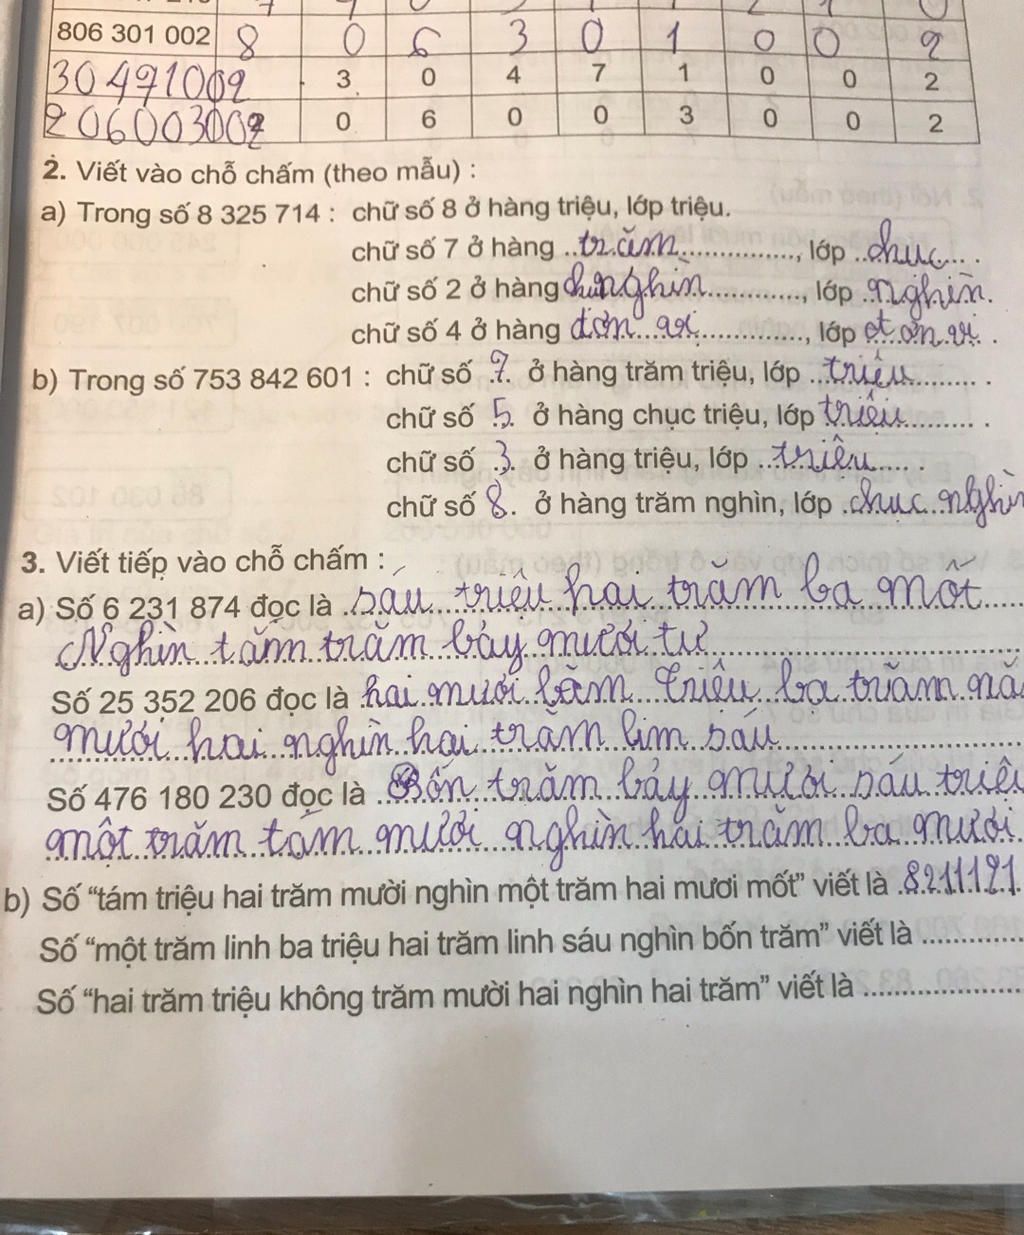 806 301 002 8 0 6 3 0 1 0 0 2
30 471002 3 0 4 7 1 0 0 2
206003002 0 6 0 0 3 0 0 2
2. Viết vào chỗ chấm (theo mẫu) :
a) Trong số 8 325 714 : chữ số 8 ở hàng triệu, lớp triệu.
chữ số 7 ở hàng ..trăm..............., lớp ..chục... .
chữ số 2 ở hàng chục nghìn............, lớp .nghìn.
chữ số 4 ở hàng đơn vị..............., lớp đơn vị. .
b) Trong số 753 842 601 : chữ số .7. ở hàng trăm triệu, lớp ..triệu......... .
chữ số .5. ở hàng chục triệu, lớp triệu.......... .
chữ số .3. ở hàng triệu, lớp ..triệu.... .
chữ số 8. ở hàng trăm nghìn, lớp .chục nghìn
3. Viết tiếp vào chỗ chấm :
a) Số 6 231 874 đọc là .sáu triệu hai trăm ba mốt
Nghìn tám trăm bảy mươi tư
Số 25 352 206 đọc là hai mươi lăm triệu ba trăm nă
mươi hai nghìn hai trăm lim sáu
Số 476 180 230 đọc là ..Bốn trăm bảy mươi sáu triệ
một trăm tám mươi nghìn hai trăm ba mươi.
b) Số “tám triệu hai trăm mười nghìn một trăm hai mươi mốt” viết là .8211121.
Số “một trăm linh ba triệu hai trăm linh sáu nghìn bốn trăm” viết là .............
Số “hai trăm triệu không trăm mười hai nghìn hai trăm” viết là ....................